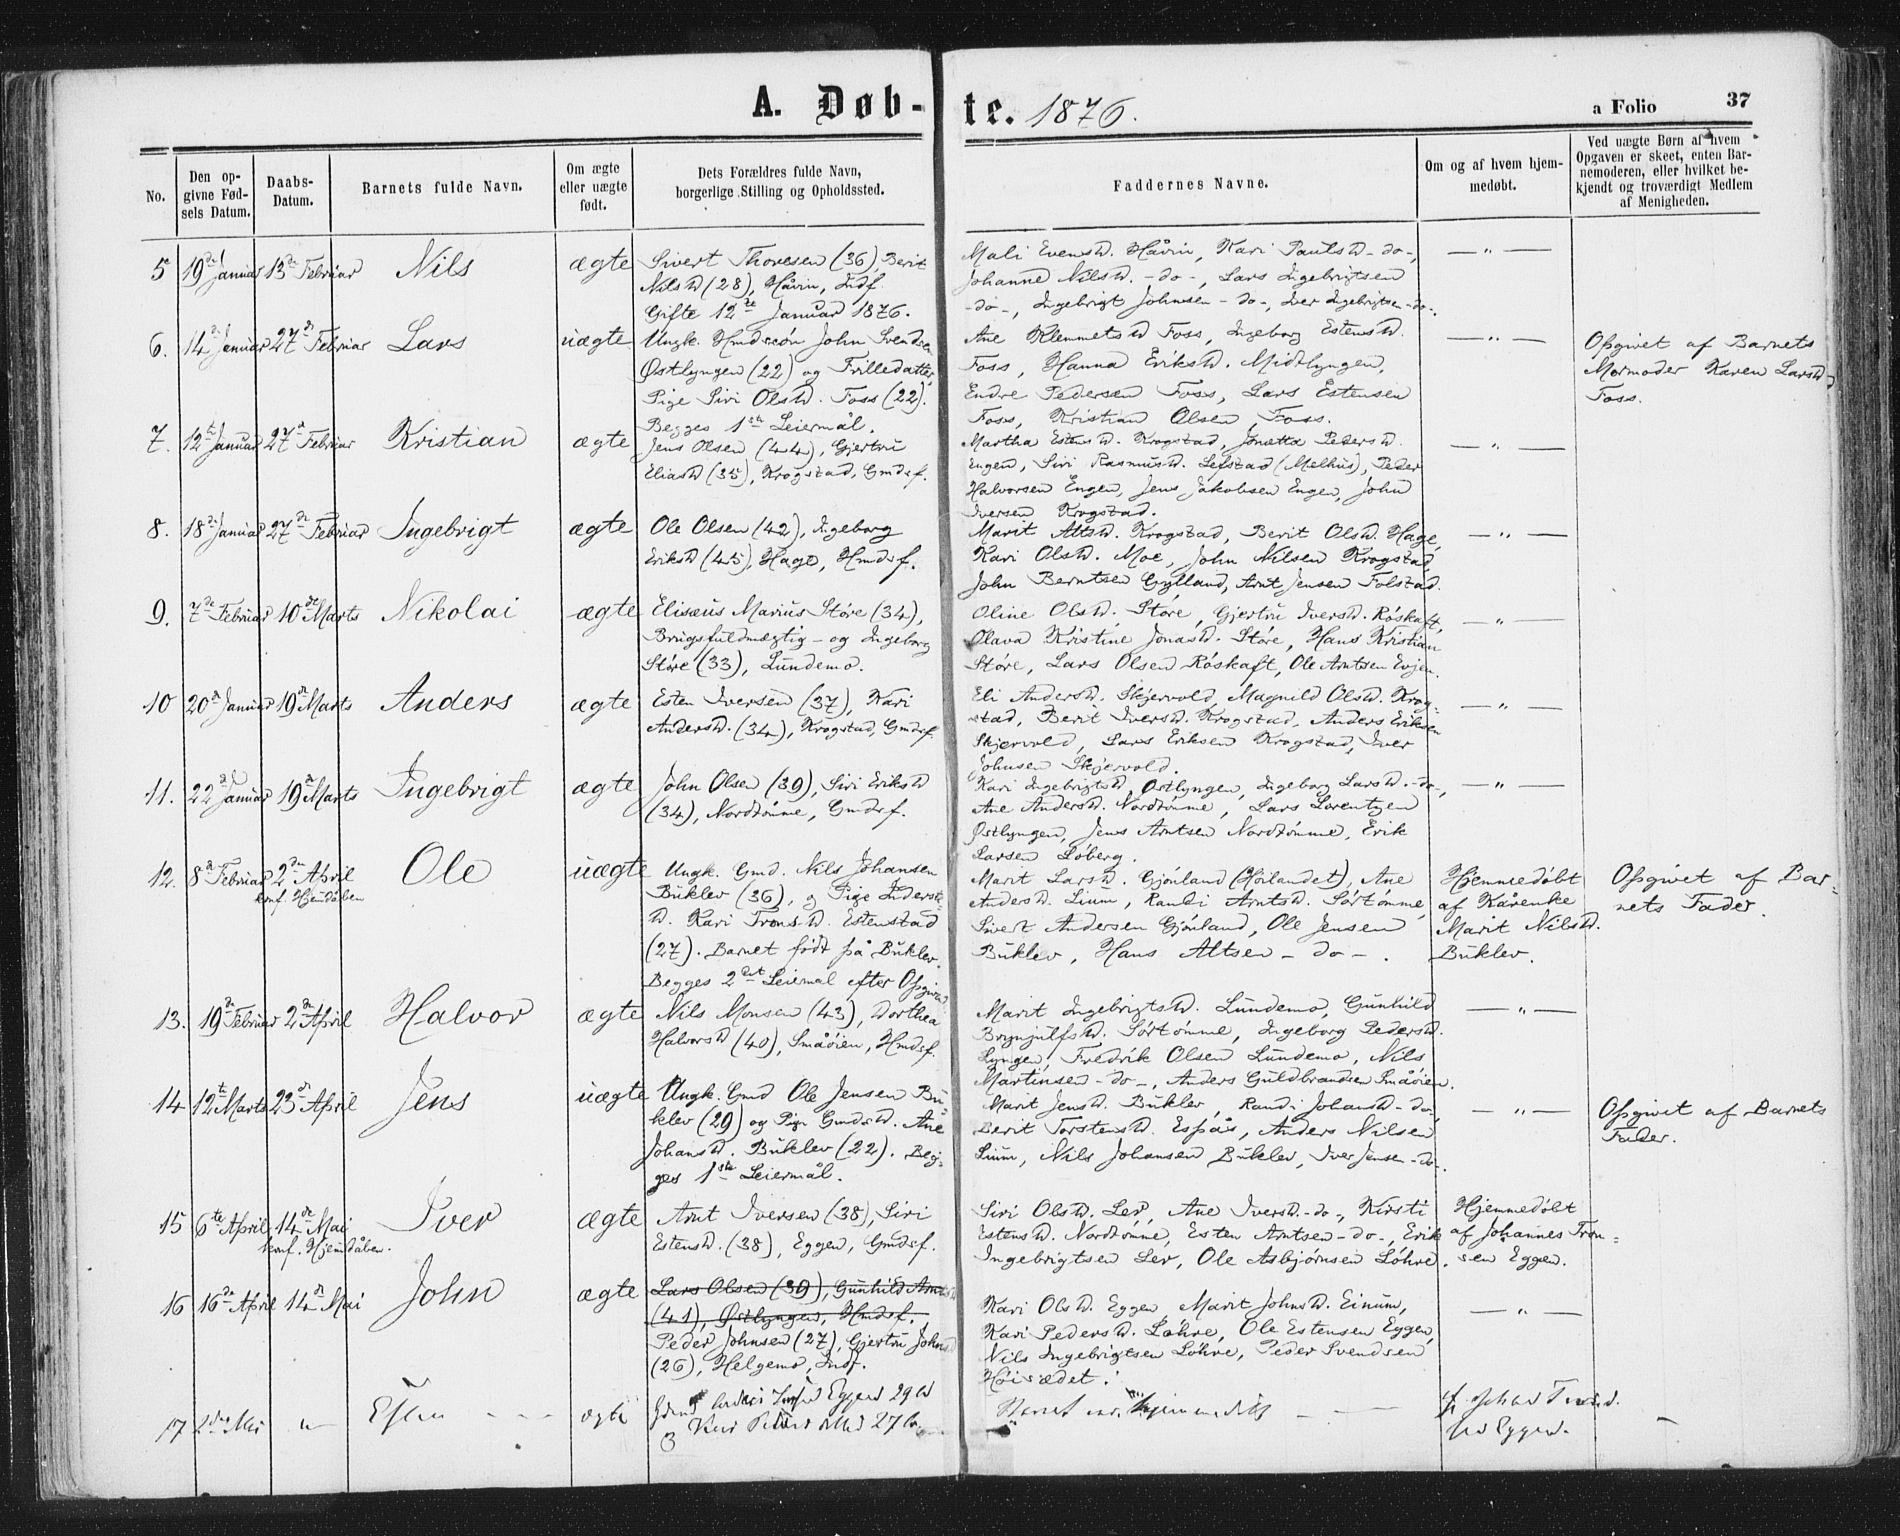 A. Døb-te. 1876.
a Folio 37
No.
Den op-
givne Fød-
sels Datum.
Daabs-
Datum.
Barnets fulde Navn.
Om ægte
eller uægte
født.
Dets Forældres fulde Navn,
borgerlige Stilling og Opholdssted.
Faddernes Navne.
Om og af hvem hjem-
medøbt.
Ved uægte Børn af hvem
Opgaven er skeet, enten Bar-
nemoderen, eller hvilket be-
kjendt og troværdigt Medlem
af Menigheden.
5 19de Januar 13de Februar Nils ægte
Sivert Thoresen (36), Berit
Nilsd (28), Håvin, Indf.
Gifte 12te Januar 1876.
Mali Evensd. Håvin, Kari Paulsd -do-,
Johanne Nilsd. -do-, Lars Ingebrigtsen
-do-, Ingebrigt Johnsen -do-, Iver Ingebrigtsen -do-.
— " —
6. 14de Januar 27de Februar Lars uægte
Ungk. Hmdssøn John Svendsen
Østlyngen (22) og Frilledatter,
Pige Siri Olsd. Foss (22).
Begges 1ste Leiermål.
Ane Klemmetsd Foss, Ingeborg Estensd.
Foss, Hanna Eriksd. Midtlyngen,
Endre Pedersen Foss, Lars Estensen
Foss, Kristian Olsen Foss.
— " —
Opgivet af Barnets
Mormoder Karen Larsd
Foss.
7. 12te Januar 27de Februar Kristian ægte
Jens Olsen (44), Gjertru
Eliasd (35), Krogstad, Gmdsf.
Martha Estensd. Krogstad, Jonetta Pedersd.
Engen, Siri Rasmusd. Lefstad (Melhus), Peder
Halvorsen Engen, Jens Jakobsen Engen, John
Iversen Krogstad.
— " —
8. 18de Januar 27de Februar Ingebrigt ægte
Ole Olsen (42), Ingeborg
Eriksd (45), Hage, Hmdsf.
Marit Altsd. Krogstad, Berit Olsd. Hage,
Kari Olsd. Moe, John Nilsen Krogstad,
John Berntsen Gylland, Arnt Jensen Folstad.
— " —
9. 7de Februar 10de Marts Nikolai ægte
Elisæus Marius Støre (34),
Brugsfuldmægtig - og Ingeborg
Støre (33), Lundemo.
Oline Olsd. Støre, Gjertru Iversd. Røskaft,
Olava Kristine Jonasd. Støre, Hans Kristian
Støre, Lars Olsen Røskaft, Ole Arntsen Evjen.
— " —
10 20de Januar 19de Marts Anders ægte
Esten Iversen (37), Kari
Andersd. (34), Krogstad, Gmdsf.
Eli Andersd. Skjervold, Magnild Olsd. Krog-
stad, Berit Iversd. Krogstad, Anders Eriksen
Skjervold, Lars Eriksen Krogstad, Iver
Johnsen Skjervold.
— " —
11. 22de Januar 19de Marts Ingebrigt ægte
John Olsen (39), Siri Eriksd
(34), Nordtømme, Gmdsf.
Kari Ingebrigtsd Østlyngen, Ingeborg Larsd. -do-,
Ane Andersd. Nordtømme, Lars Lorentzen
Østlyngen, Jens Arntsen Nordtømme, Erik
Larsen Løberg.
— " —
12. 8de Februar 2den April
konf. Hjemdåben
Ole uægte
Ungk. Gmd. Nils Johansen
Buklev (36), og Pige Inderste-
d. Kari Tronsd. Estenstad
(27). Barnet født på Buklev.
Begges 2det Leiermål efter Opgivd.
Marit Larsd. Gjønland (Hölandet), Ane
Andersd. Lium, Randi Arntsd. Sørtømme,
Sivert Andersen Gjønland, Ole Jensen
Buklev, Hans Altsen -do-.
Hjemmedøbt
af Kårenke
Marit Nilsd.
Buklev.
Opgivet af Bar-
nets Fader.
13. 19de Februar 2den April Halvor ægte
Nils Monsen (43), Dorthea
Halvorsd (40), Småøien, Hmdsf.
Marit Ingebrigtsd. Lundemo, Gunhild
Brynjulfsd. Sørtømme, Ingeborg Pedersd.
Lyngen, Fredrik Olsen Lundemo, Nils
Martinsen -do-, Anders Guldbrandsen Småøien.
— " —
14 12te Marts 23de April Jens uægte
Ungk. Gmd Ole Jensen Bu-
klev (29) og Pige Gmdsd. Ane
Johansd. Buklev (22). Beg-
ges 1ste Leiermål.
Marit Jensd. Buklev, Randi Johansd -do-,
Berit Torstensd. Espås, Anders Nilsen
Lium, Nils Johansen Buklev, Iver Jensen -do-.
— " —
Opgivet af Barnets
Fader.
15 6te April 14de Mai
konf. Hjemdåben.
Iver ægte
Arnt Iversen (38), Siri
Estensd. (38), Eggen, Gmdsf.
Siri Olsd. Ler, Ane Iversd. -do-, Kirsti
Estensd. Nordtømme, Esten Arntsen -do-, Erik
Ingebrigtsen Ler, Ole Asbjørnsen Løhre.
Hjemmedøbt
af Johannes Tron-
sen Eggen.
16 16de April 14de Mai John ægte
Lars Olsen (39), Gunhild Arntsd
(41), Østlyngen, Hmdsf.
Peder Johnsen (27), Gjertru Johnsd
(26), Helgemo, Indf.
Kari Olsd. Eggen, Marit Johnsd. Einum,
Kari Pedersd. Løhre, Ole Estensen Eggen,
Nils Ingebrigtsen Løhre, Peder Svendsen
Høisædet.
— " —
17 2den Mai " Esten — - — ægte
Eggen 29
27
Barnet var hjemmedøbt — —
af
Eggen.
—